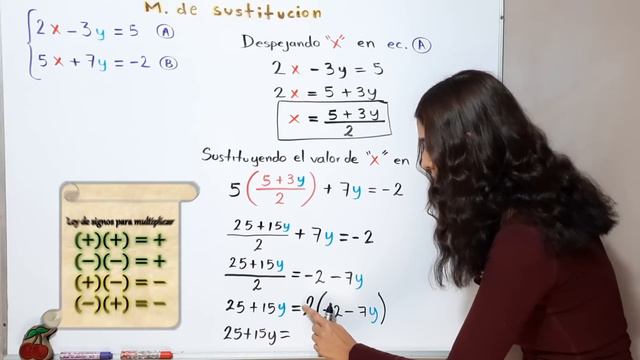 M. de sustitucion
2x - 3y = 5 (A)
5x + 7y = -2 (B)
Despejando "x" en ec. (A)
2x - 3y = 5
2x = 5 + 3y
x = (5 + 3y)/2
Sustituyendo el valor de "x" en
5((5 + 3y)/2) + 7y = -2
(25 + 15y)/2 + 7y = -2
(25 + 15y)/2 = -2 - 7y
25 + 15y = 2(-2 - 7y)
25 + 15y =
Ley de signos para multiplicar
(+)(+) = +
(-)(-) = +
(+)(-) = -
(-)(+) = -